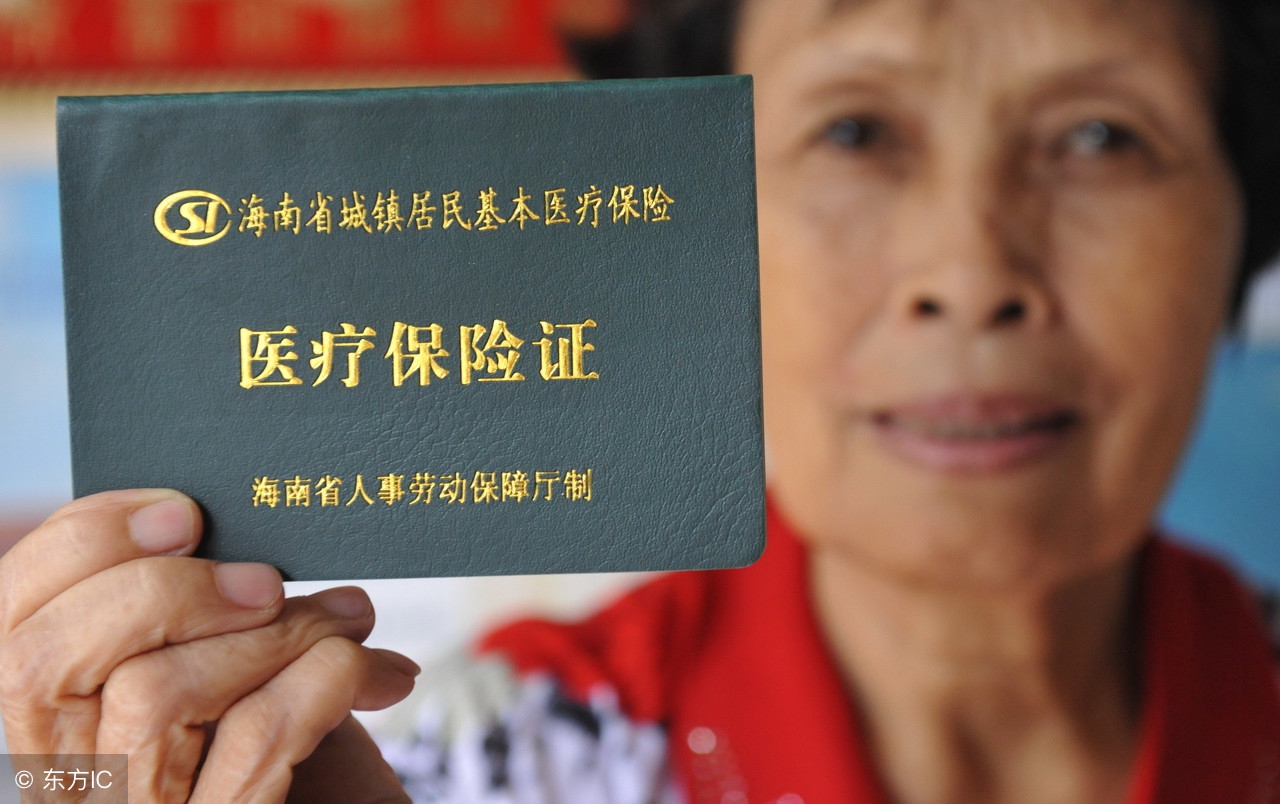 SI 海南省城镇居民基本医疗保险
医疗保险证
海南省人事劳动保障厅制
© 东方IC